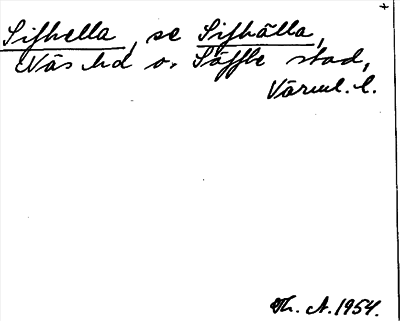 Sifhella, se Sifhälla,
Näs hd o. Säffle stad,
Värml. l.
Th. A. 1954.